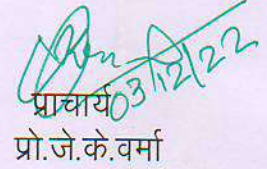 03/12/22
प्राचार्य
प्रो.जे.के.वर्मा